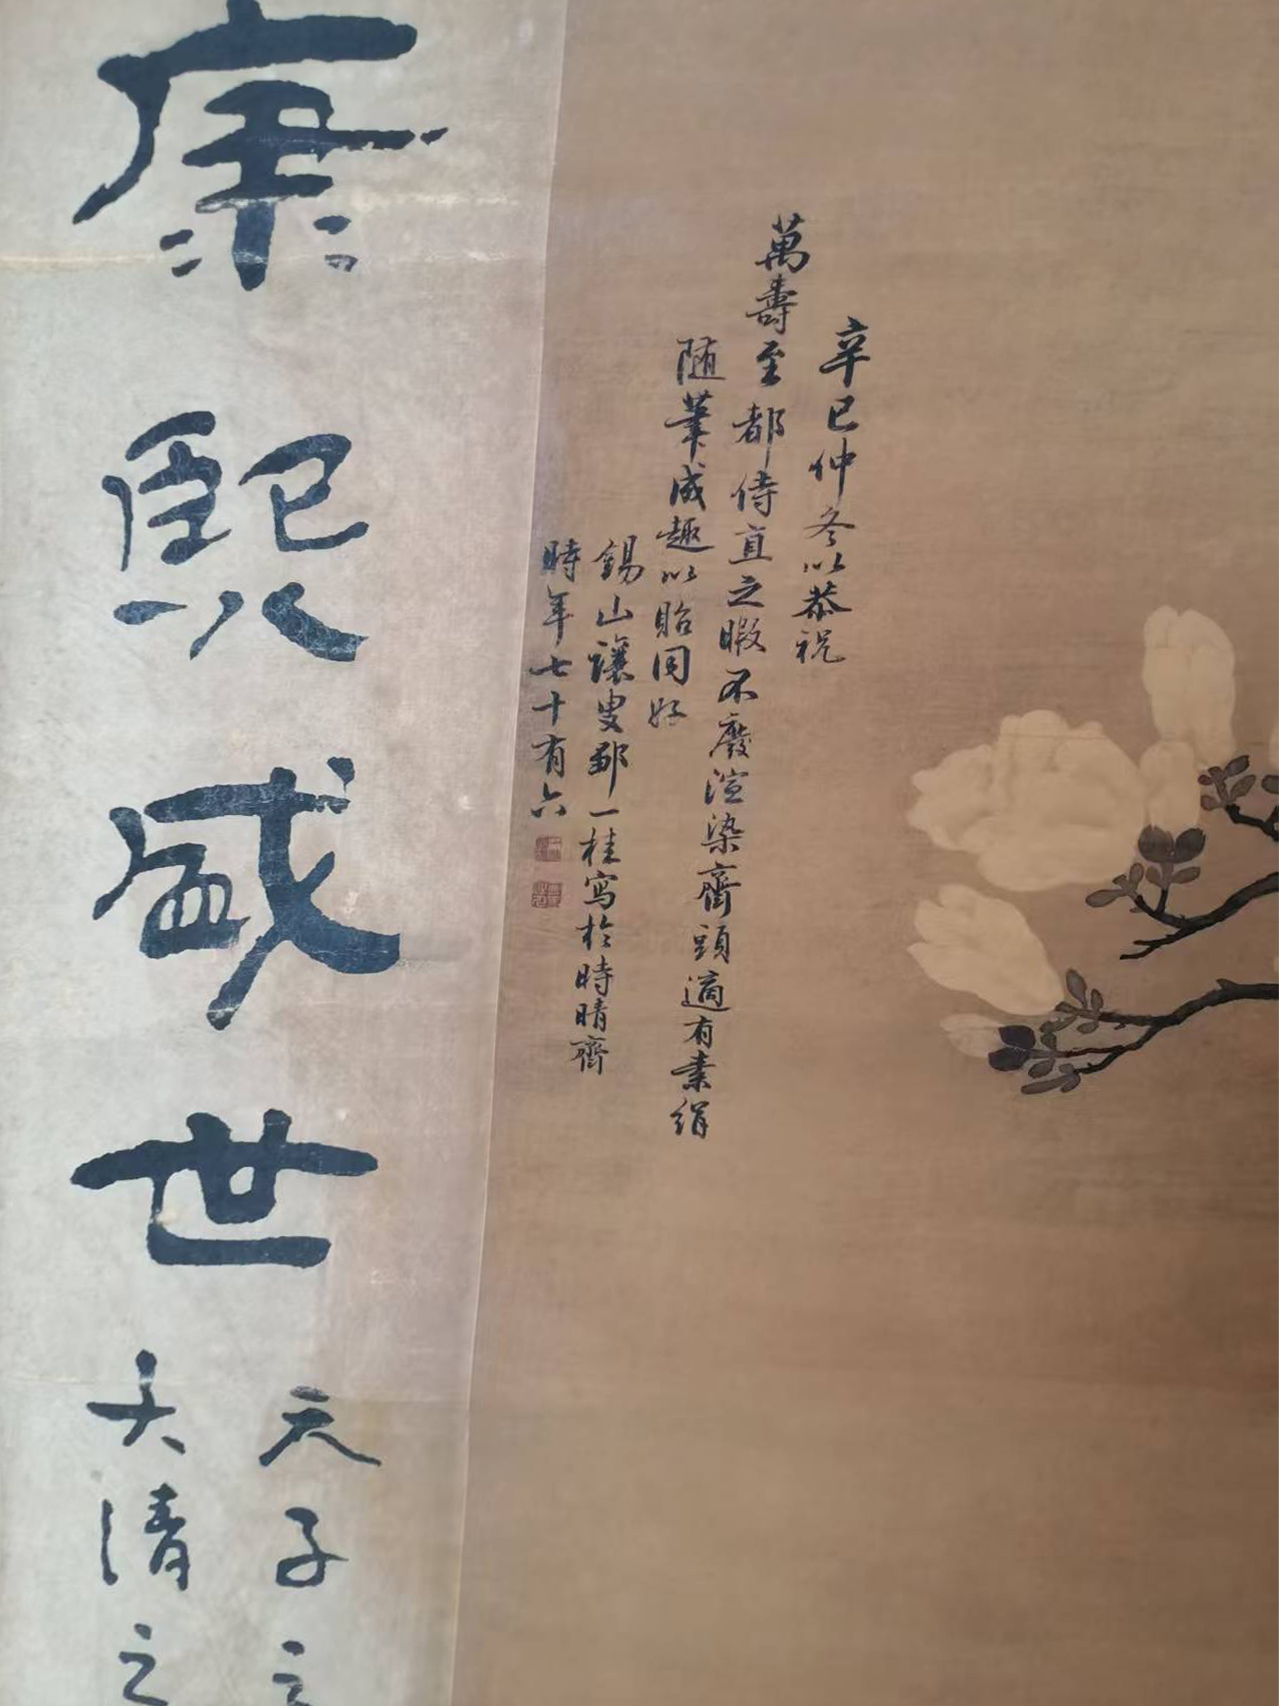 辛巳仲冬以恭祝
萬壽至都侍直之暇不廢渲染齋頭適有素絹
随筆成趣以貽同好
錫山讓叟鄒一桂寫於時晴齋
時年七十有六
康熙盛世
天子之
大清之